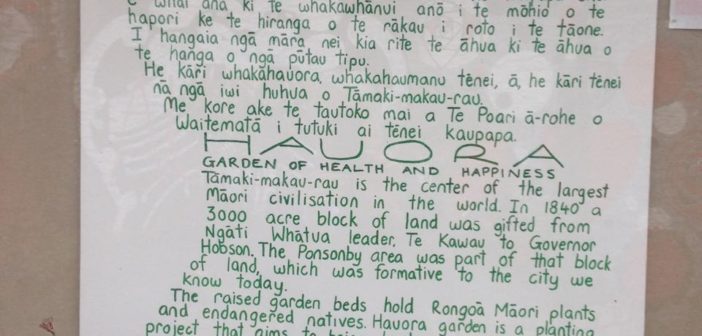 e whai ana ki te whakawhānui anō i te mōhio o te
hapori ke te hiranga o te rākau i roto i te tāone.
I hangaia ngā māra nei kia rite te āhua ki te āhua o
te hanga o ngā pūtau tipu.
He kāri whakahauora, whakahaumanu tēnei, ā, he kāri tēnei
nā ngā iwi huhua o Tāmaki-makau-rau.
Me kore ake te tautoko mai a Te Poari ā-rohe o
Waitematā i tutuki ai tēnei kaupapa.
HAUORA
GARDEN OF HEALTH AND HAPPINESS
Tāmaki-makau-rau is the center of the largest
Māori civilisation in the world. In 1840 a
3000 acre block of land was gifted from
Ngāti Whātua leader, Te Kawau to Governor
Hobson. The Ponsonby area was part of that block
of land, which was formative to the city we
know today.
The raised garden beds hold Rongoā Māori plants
and endangered natives. Hauora garden is a planting
project that aims to